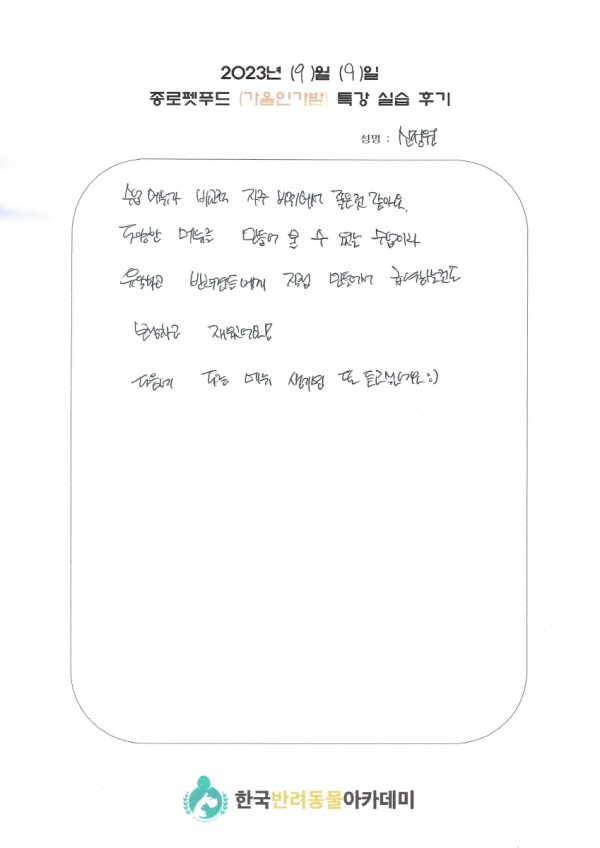 2023년 (9)월 (9)일
종로펫푸드 (가을인가밤) 특강 실습 후기
성명 : 신정원
수업 메뉴가 비교적 자주 바뀌어서 좋은것 같아요.
다양한 메뉴를 만들어 볼 수 있는 수업이라
유익하고 반려견들에게 직접 만들어서 급여해보는것도
보람차고 재밌어요!
다음에 다른 메뉴 생기면 또 듣고싶네요 :)
한국반려동물아카데미